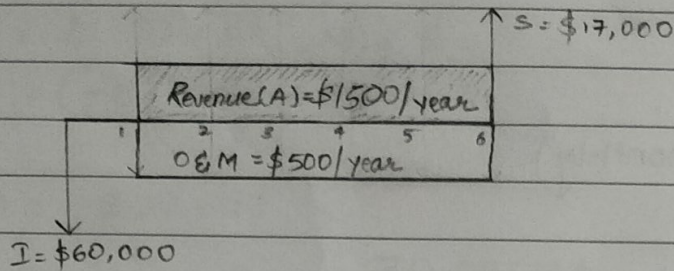 S = $17,000
Revenue(A)=$1500/year
1 2 3 4 5 6
O&M = $500/year
I = $60,000